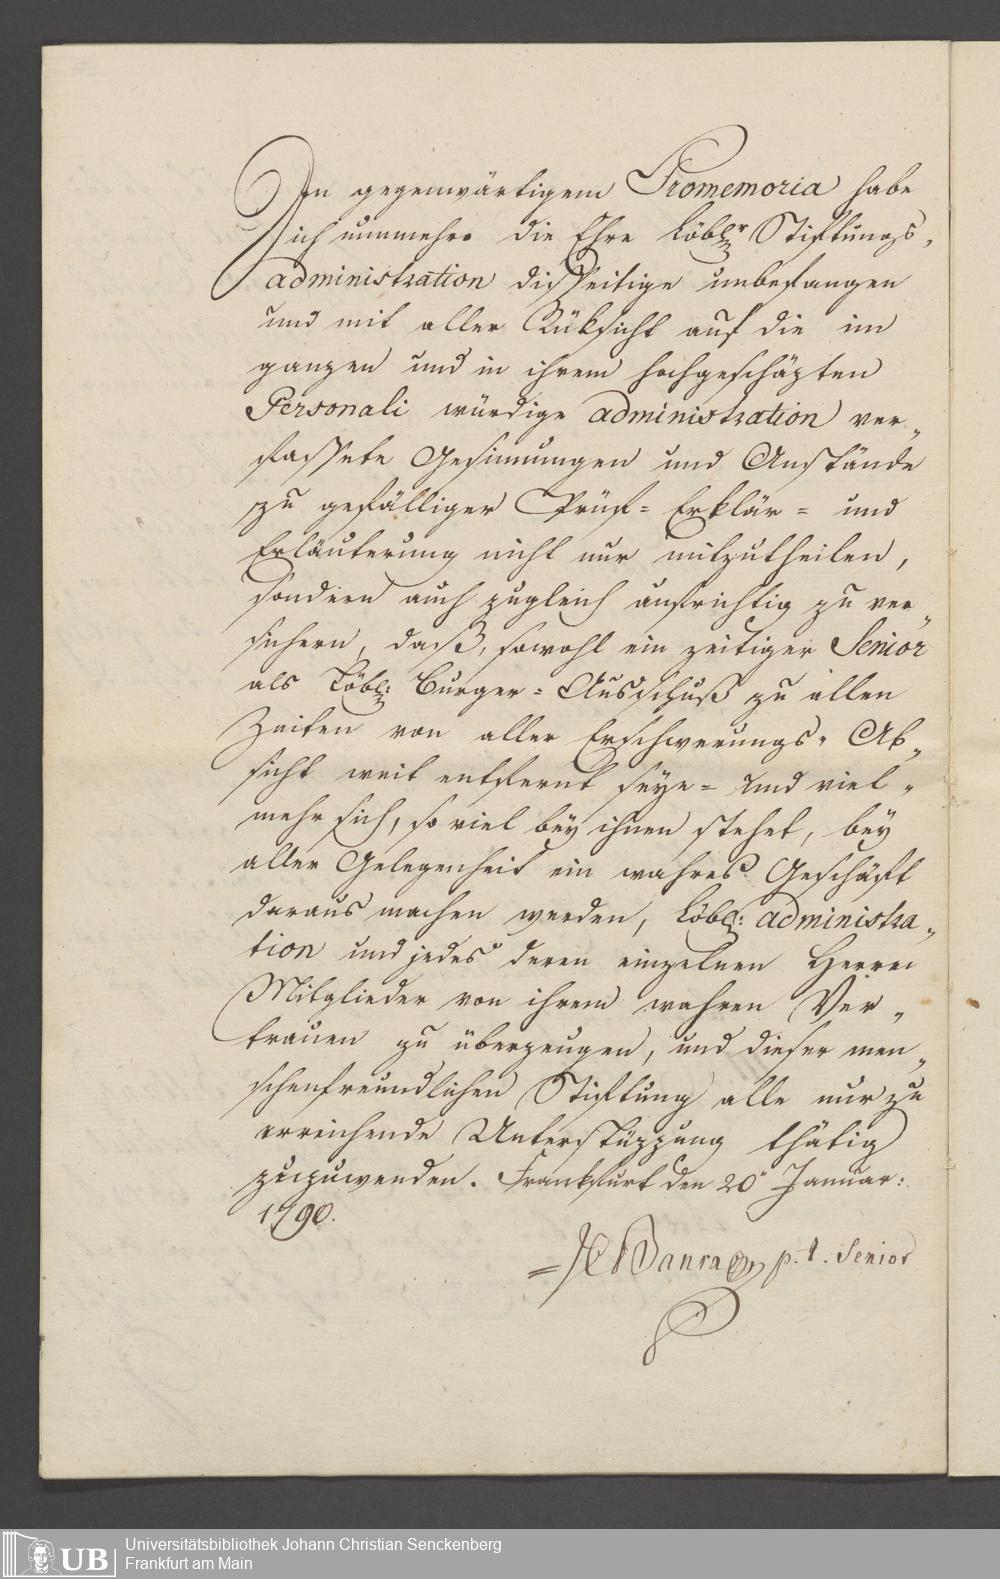 In gegenwärtigem Promemoria habe
ich nunmehro die Ehre Löbl.r Stiftungs-
administration disseitige unbefangen
und mit aller Rüksicht auf die im
ganzen und in ihrem hochgeschäzten
Personali würdige administration ver-
fassete Gesinnungen und Anstände
zu gefälliger Prüf- Erklär- und
Erläuterung nicht nur mitzutheilen,
sondern auch zugleich aufrichtig zu ver-
sichern, daß, sowohl ein zeitiger Senior
als Löbl: Burger-Ausschuß zu allen
Zeiten von aller Erschwerungs-Ab-
sicht weit entfernt seye- und viel-
mehr sich, so viel bey ihnen stehet, bey
aller Gelegenheit ein wahres Geschäft
daraus machen werden, Löbl: administra-
tion und jedes deren einzelnen Herren
Mitglieder von ihrem wahren Ver-
trauen zu überzeugen, und dieser men-
schenfreundlichen Stiftung alle nur zu
erreichende Unterstüzzung thätig
zuzuwenden. Frankfurt den 20 Januar:
1790.
p. t. Senior
UB Universitätsbibliothek Johann Christian Senckenberg
Frankfurt am Main